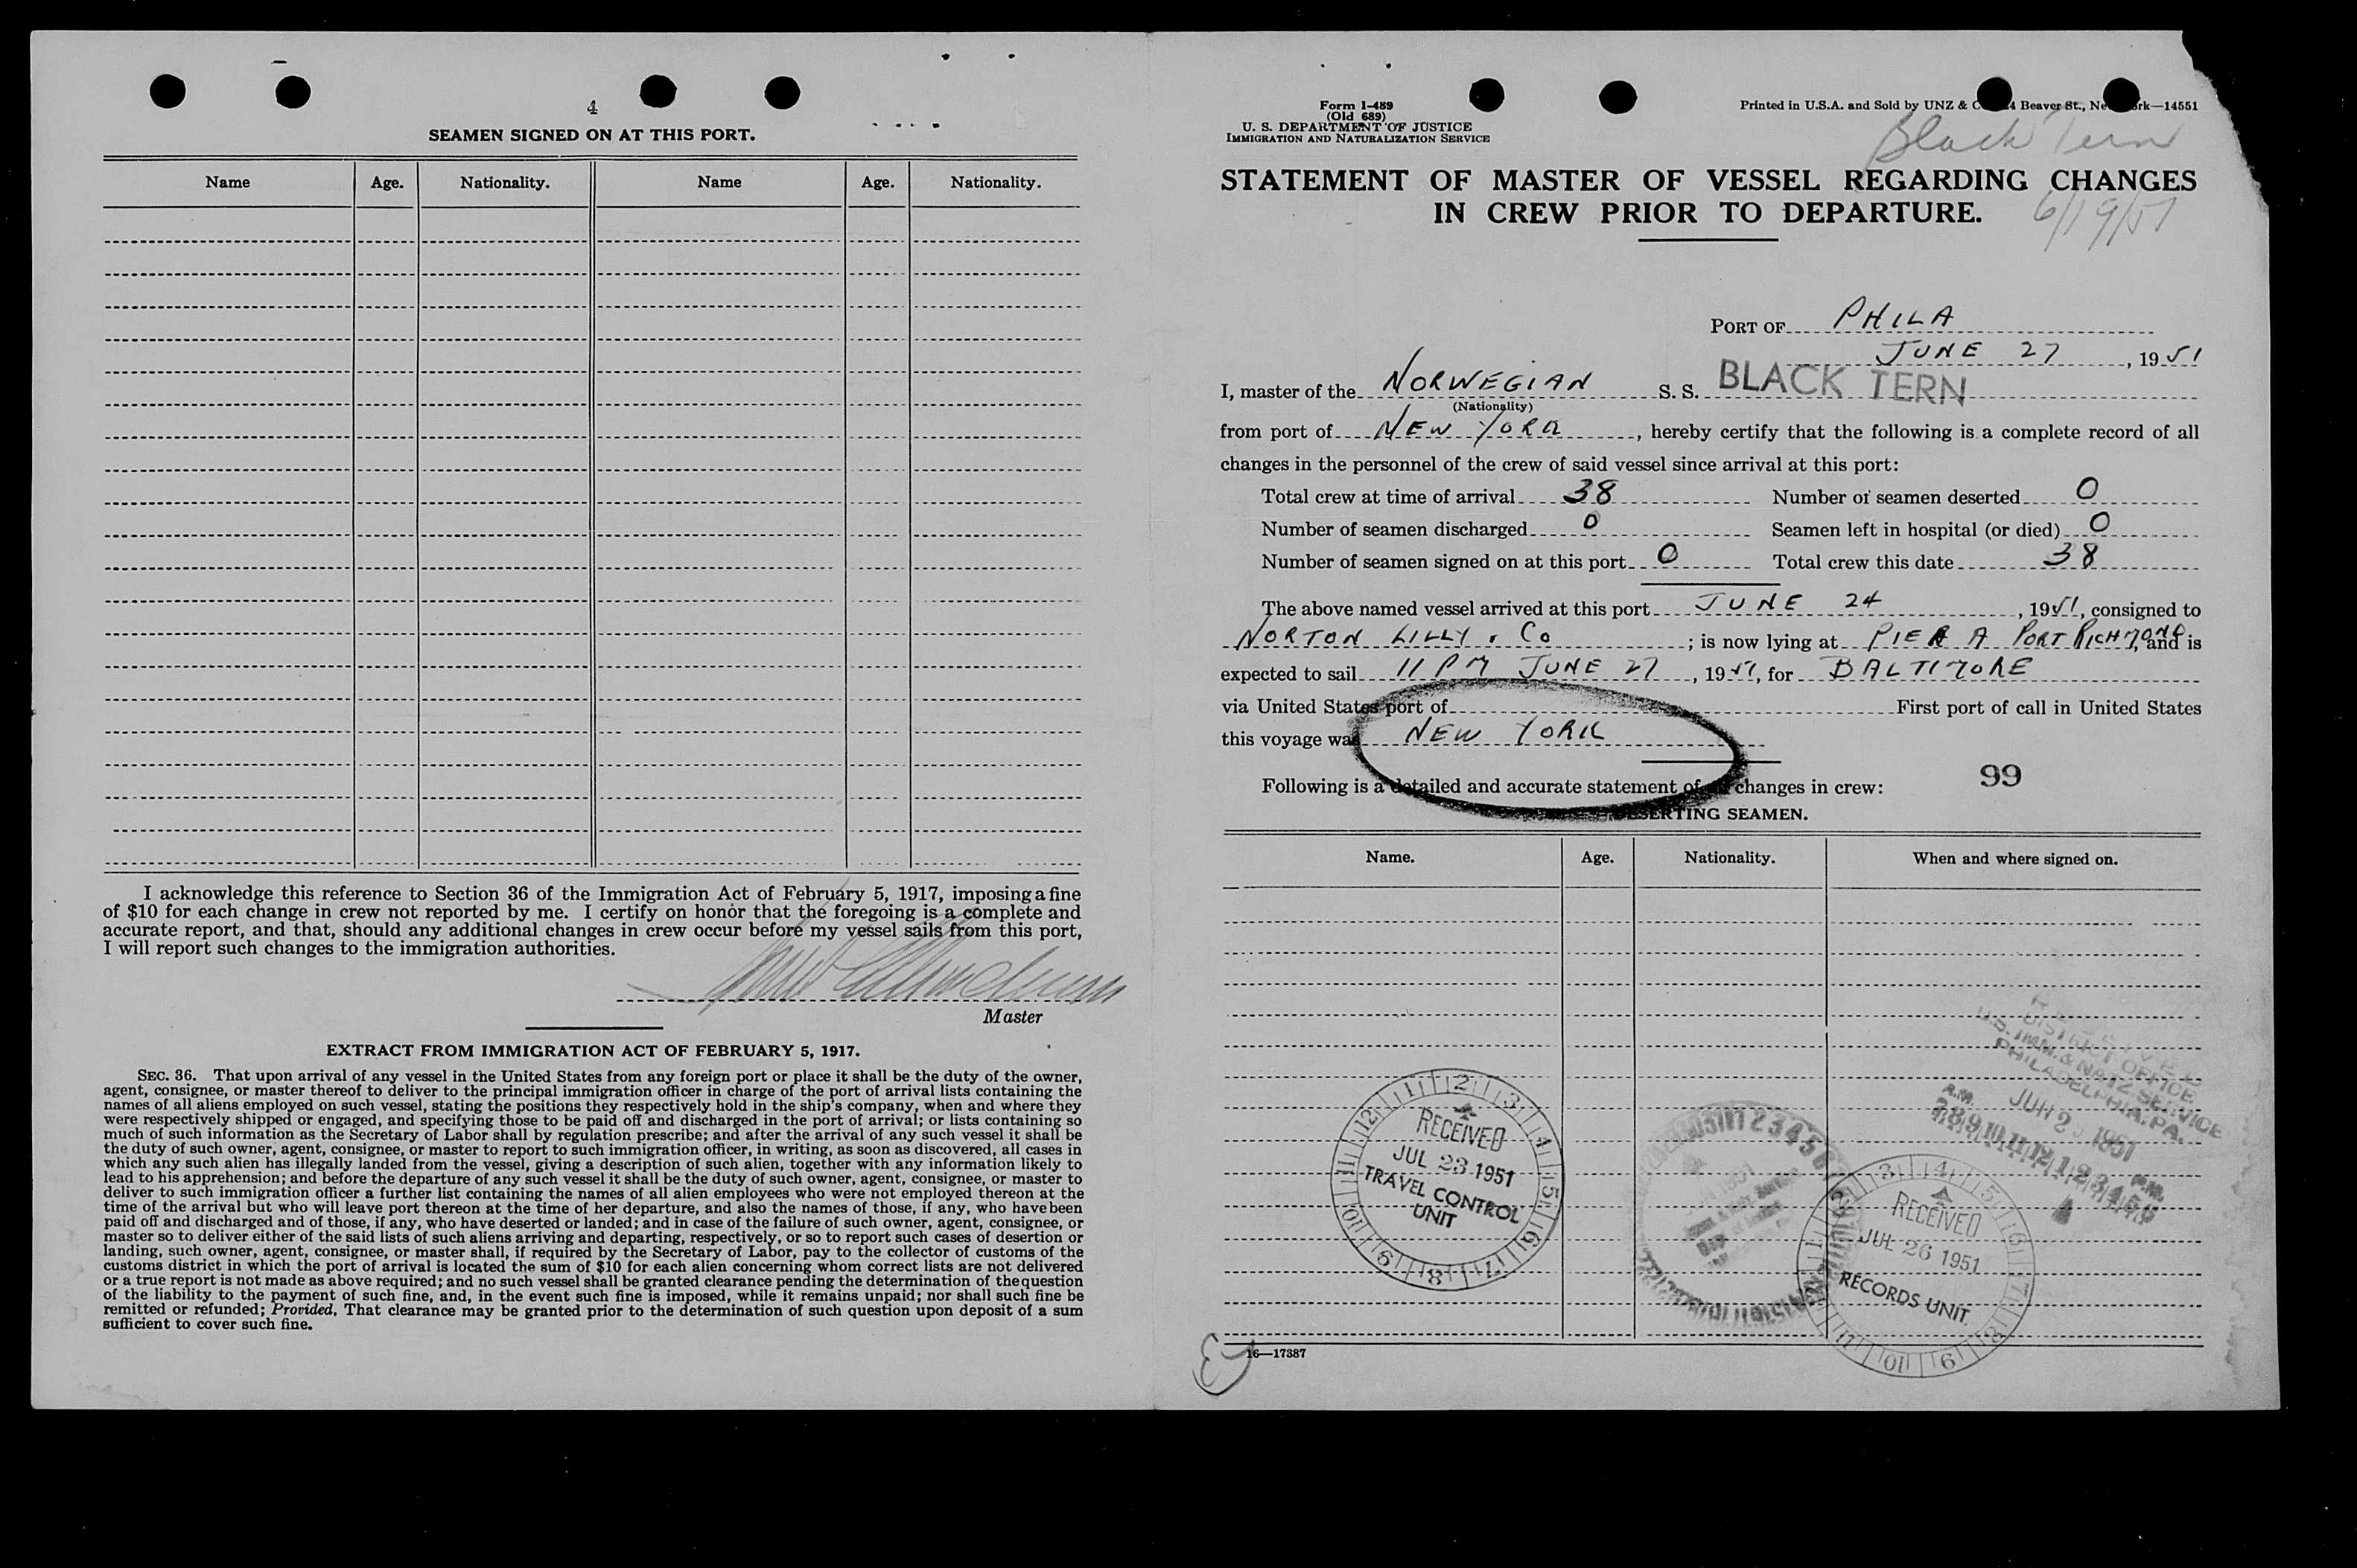 4
SEAMEN SIGNED ON AT THIS PORT.
Name Age. Nationality. Name Age. Nationality.
I acknowledge this reference to Section 36 of the Immigration Act of February 5, 1917, imposing a fine
of $10 for each change in crew not reported by me. I certify on honor that the foregoing is a complete and
accurate report, and that, should any additional changes in crew occur before my vessel sails from this port,
I will report such changes to the immigration authorities.
Master
EXTRACT FROM IMMIGRATION ACT OF FEBRUARY 5, 1917.
SEC. 36. That upon arrival of any vessel in the United States from any foreign port or place it shall be the duty of the owner,
agent, consignee, or master thereof to deliver to the principal immigration officer in charge of the port of arrival lists containing the
names of all aliens employed on such vessel, stating the positions they respectively hold in the ship's company, when and where they
were respectively shipped or engaged, and specifying those to be paid off and discharged in the port of arrival; or lists containing so
much of such information as the Secretary of Labor shall by regulation prescribe; and after the arrival of any such vessel it shall be
the duty of such owner, agent, consignee, or master to report to such immigration officer, in writing, as soon as discovered, all cases in
which any such alien has illegally landed from the vessel, giving a description of such alien, together with any information likely to
lead to his apprehension; and before the departure of any such vessel it shall be the duty of such owner, agent, consignee, or master to
deliver to such immigration officer a further list containing the names of all alien employees who were not employed thereon at the
time of the arrival but who will leave port thereon at the time of her departure, and also the names of those, if any, who have been
paid off and discharged and of those, if any, who have deserted or landed; and in case of the failure of such owner, agent, consignee, or
master so to deliver either of the said lists of such aliens arriving and departing, respectively, or so to report such cases of desertion or
landing, such owner, agent, consignee, or master shall, if required by the Secretary of Labor, pay to the collector of customs of the
customs district in which the port of arrival is located the sum of $10 for each alien concerning whom correct lists are not delivered
or a true report is not made as above required; and no such vessel shall be granted clearance pending the determination of the question
of the liability to the payment of such fine, and, in the event such fine is imposed, while it remains unpaid; nor shall such fine be
remitted or refunded; Provided, That clearance may be granted prior to the determination of such question upon deposit of a sum
sufficient to cover such fine.
Form I-489
(Old 689)
U. S. DEPARTMENT OF JUSTICE
IMMIGRATION AND NATURALIZATION SERVICE
Printed in U.S.A. and Sold by UNZ & C 4 Beaver St., Ne rk—14551
Black Tern
STATEMENT OF MASTER OF VESSEL REGARDING CHANGES
IN CREW PRIOR TO DEPARTURE.
6/19/51
PORT OF PHILA
JUNE 27, 1951
I, master of the NORWEGIAN S. S. BLACK TERN
(Nationality)
from port of NEW YORK, hereby certify that the following is a complete record of all
changes in the personnel of the crew of said vessel since arrival at this port:
Total crew at time of arrival 38 Number of seamen deserted 0
Number of seamen discharged 0 Seamen left in hospital (or died) 0
Number of seamen signed on at this port 0 Total crew this date 38
The above named vessel arrived at this port JUNE 24, 1951, consigned to
NORTON LILLY & CO; is now lying at PIER A PORT RICHMOND, and is
expected to sail 11 PM JUNE 27, 1951, for BALTIMORE
via United States port of First port of call in United States
this voyage was NEW YORK
Following is a detailed and accurate statement of changes in crew:
99
DESERTING SEAMEN.
Name. Age. Nationality. When and where signed on.
DISTRICT OFFICE
U.S. IMM. & NATZ. SERVICE
PHILADELPHIA, PA.
A.M. JUN 2 1951 P.M.
7 8 9 10 11 12 1 2 3 4 5 6
RECEIVED
JUL 23 1951
TRAVEL CONTROL
UNIT
RECEIVED
JUL 26 1951
RECORDS UNIT
16—17387